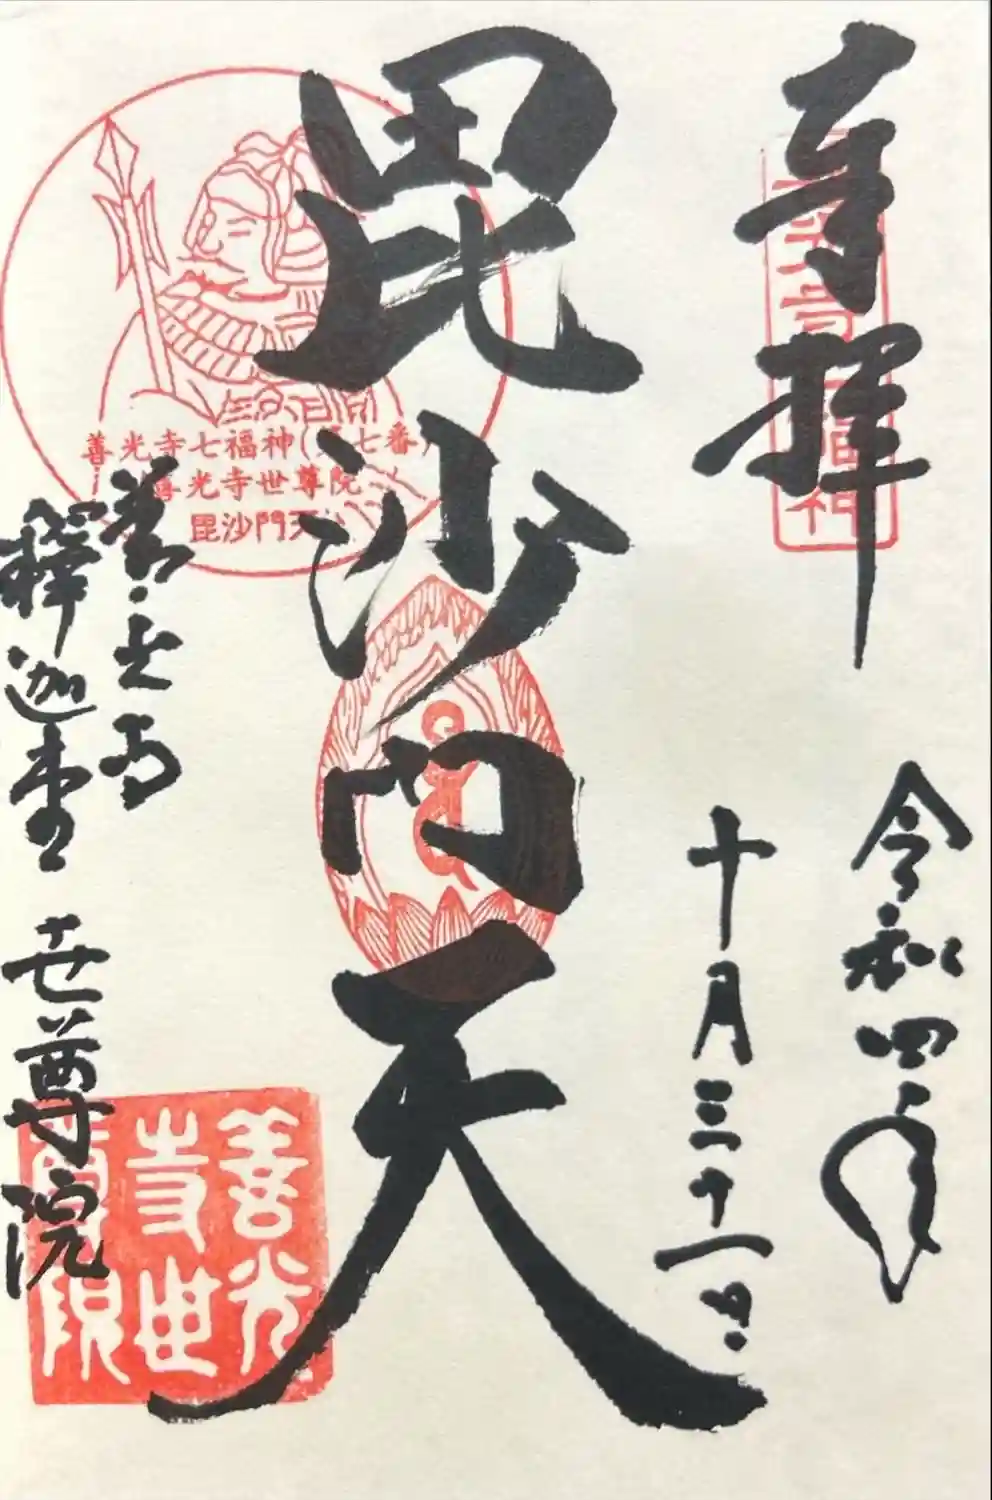 奉拝
善光寺七福神
令和四年
十月三十一日
毘沙門天
善光寺七福神(第七番)
善光寺世尊院
毘沙門天
善光寺
釋迦堂 世尊院
善光
寺世
尊院